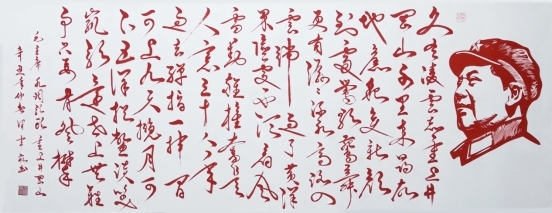 久有凌云志重上井
冈山千里来寻故
地旧貌变新颜
到处莺歌燕舞
更有潺潺流水高路入
云端过了黄洋
界险处不须看风
雷动旌旗奋是
人寰三十八年
过去弹指一挥间
可上九天揽月可
下五洋捉鳖谈笑
凯歌还世上无难
事只要肯登攀
毛主席水调歌头重上井冈山
辛丑年仲